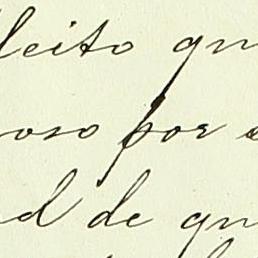 leito qu
oso por e
d de qu